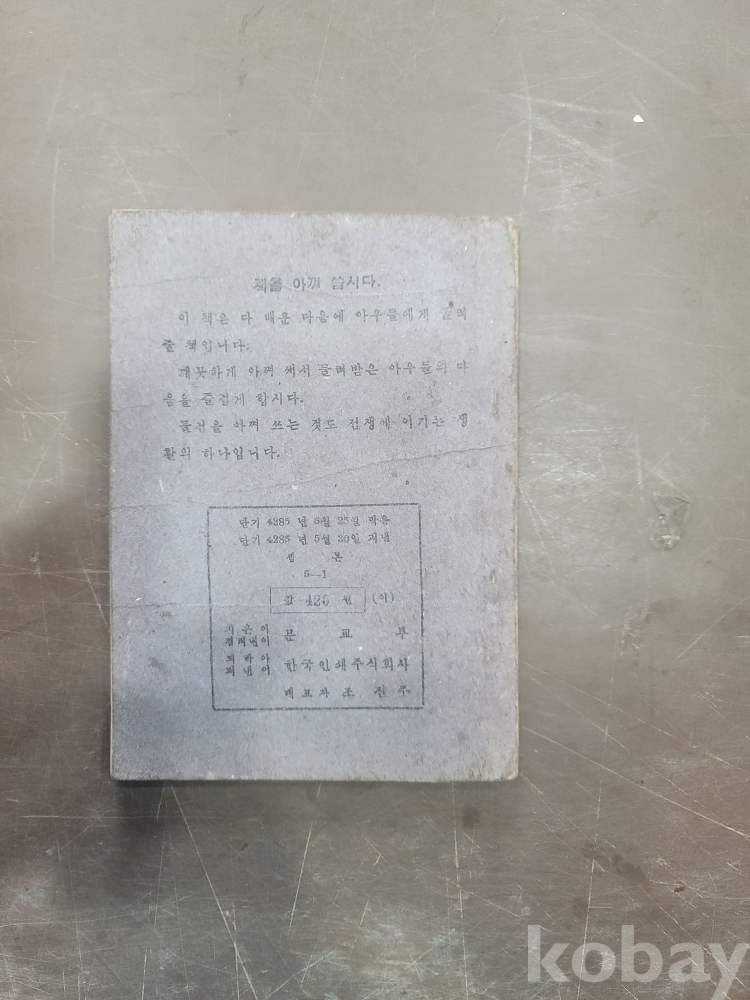 책을 아껴 씁시다.
이 책은 다 배운 다음에 아우들에게 물려
줄 책입니다.
깨끗하게 아껴 써서 물려받은 아우들의 마
음을 즐겁게 합시다.
물건을 아껴 쓰는 것도 전쟁에 이기는 생
활의 하나입니다.
단기 4285 년 5월 25일 박음
단기 4285 년 5월 30일 펴냄
셈 본
5—1
값 426 원 (이)
지은이
겸펴낸이 문 교 부
박아
펴낸이 한국인쇄주식회사
대표자 조 진 주
kobay